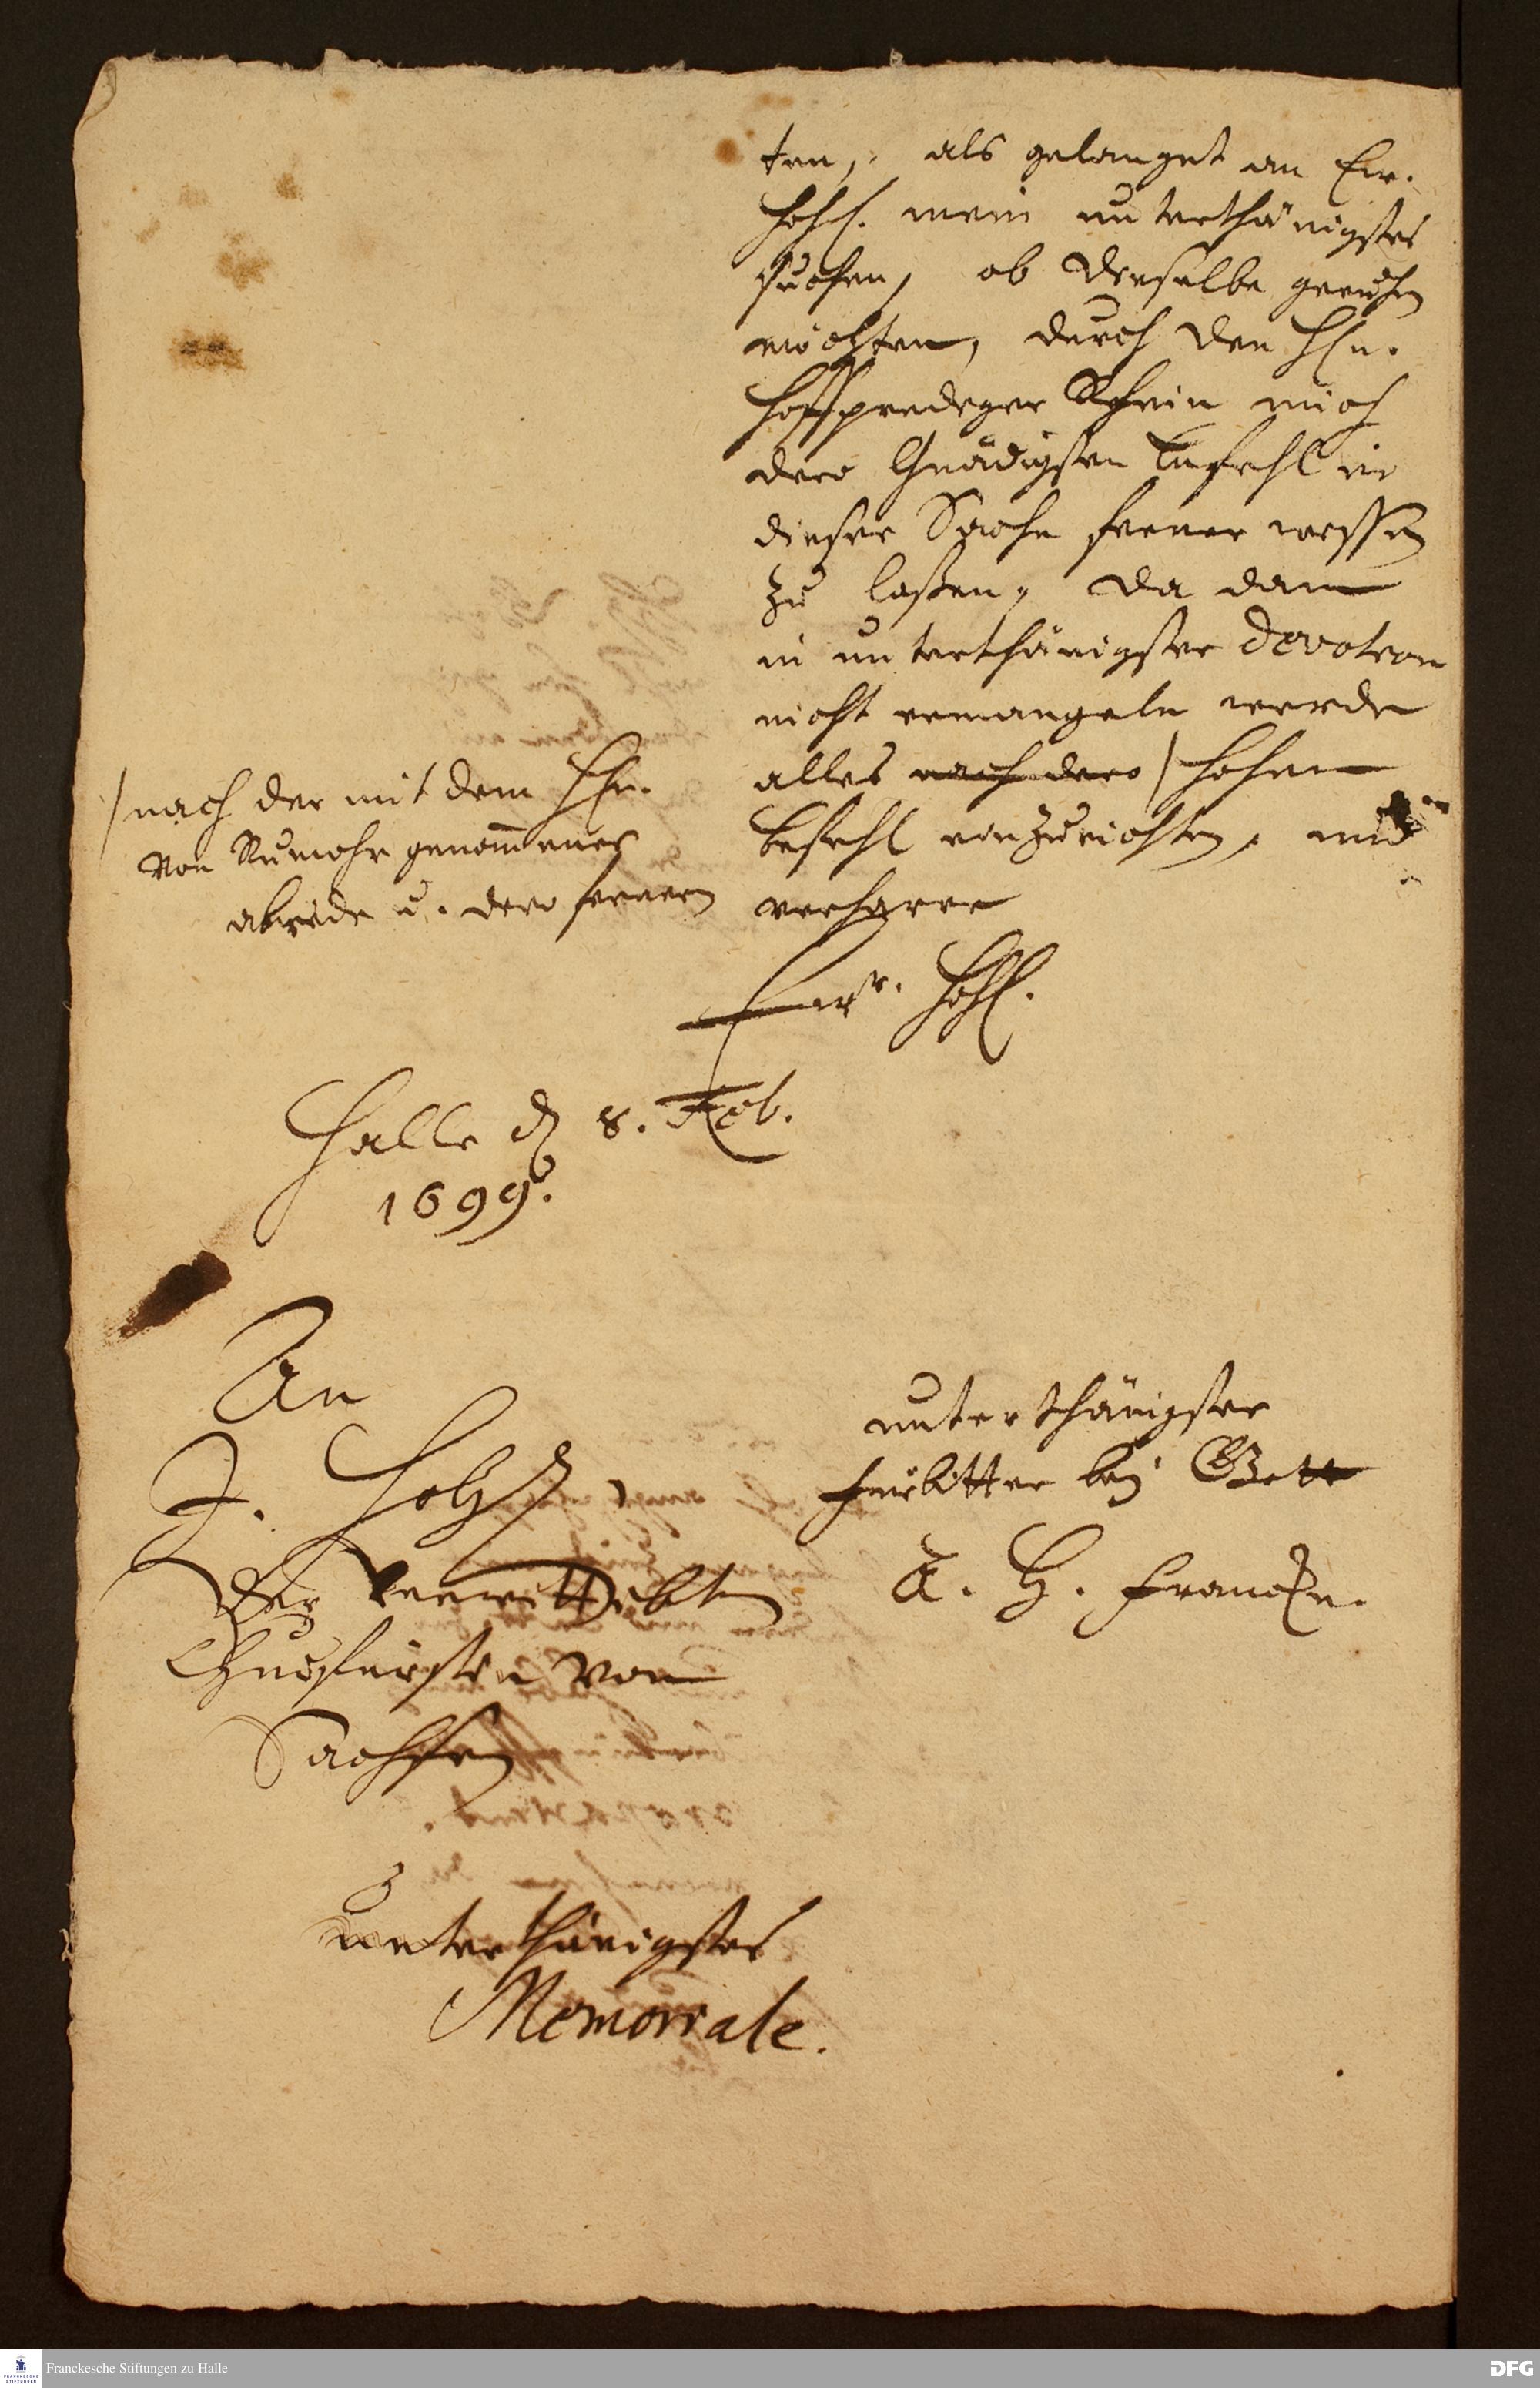 ten, als gelanget an Ew.
Hoh. mein unterthänigstes
suchen, ob dieselbe geruhen
möchten, durch den Hn.
Hoffprediger Schein mich
dero Gnädigsten befehl in
dieser Sache ferner wissen
zu lassen, da dann
in unterthänigster devotion
nicht ermangeln werde
alles nach dero / hohen
befehl einzurichten, und
verharre
/ nach der mit dem Hn.
von Rumohr genommenen
abrede u. dero fernern
Ewr. Hoh.
Halle d 8. Feb.
1699.
unterthänigster
Fürbitter bey Gott
A. H. Francke.
An
J. Hoh.,
der verwittibten
Churfürstin von
Sachsen
unterthänigstes
Memoriale.
Franckesche Stiftungen zu Halle
FRANCKESCHE
STIFTUNGEN
DFG